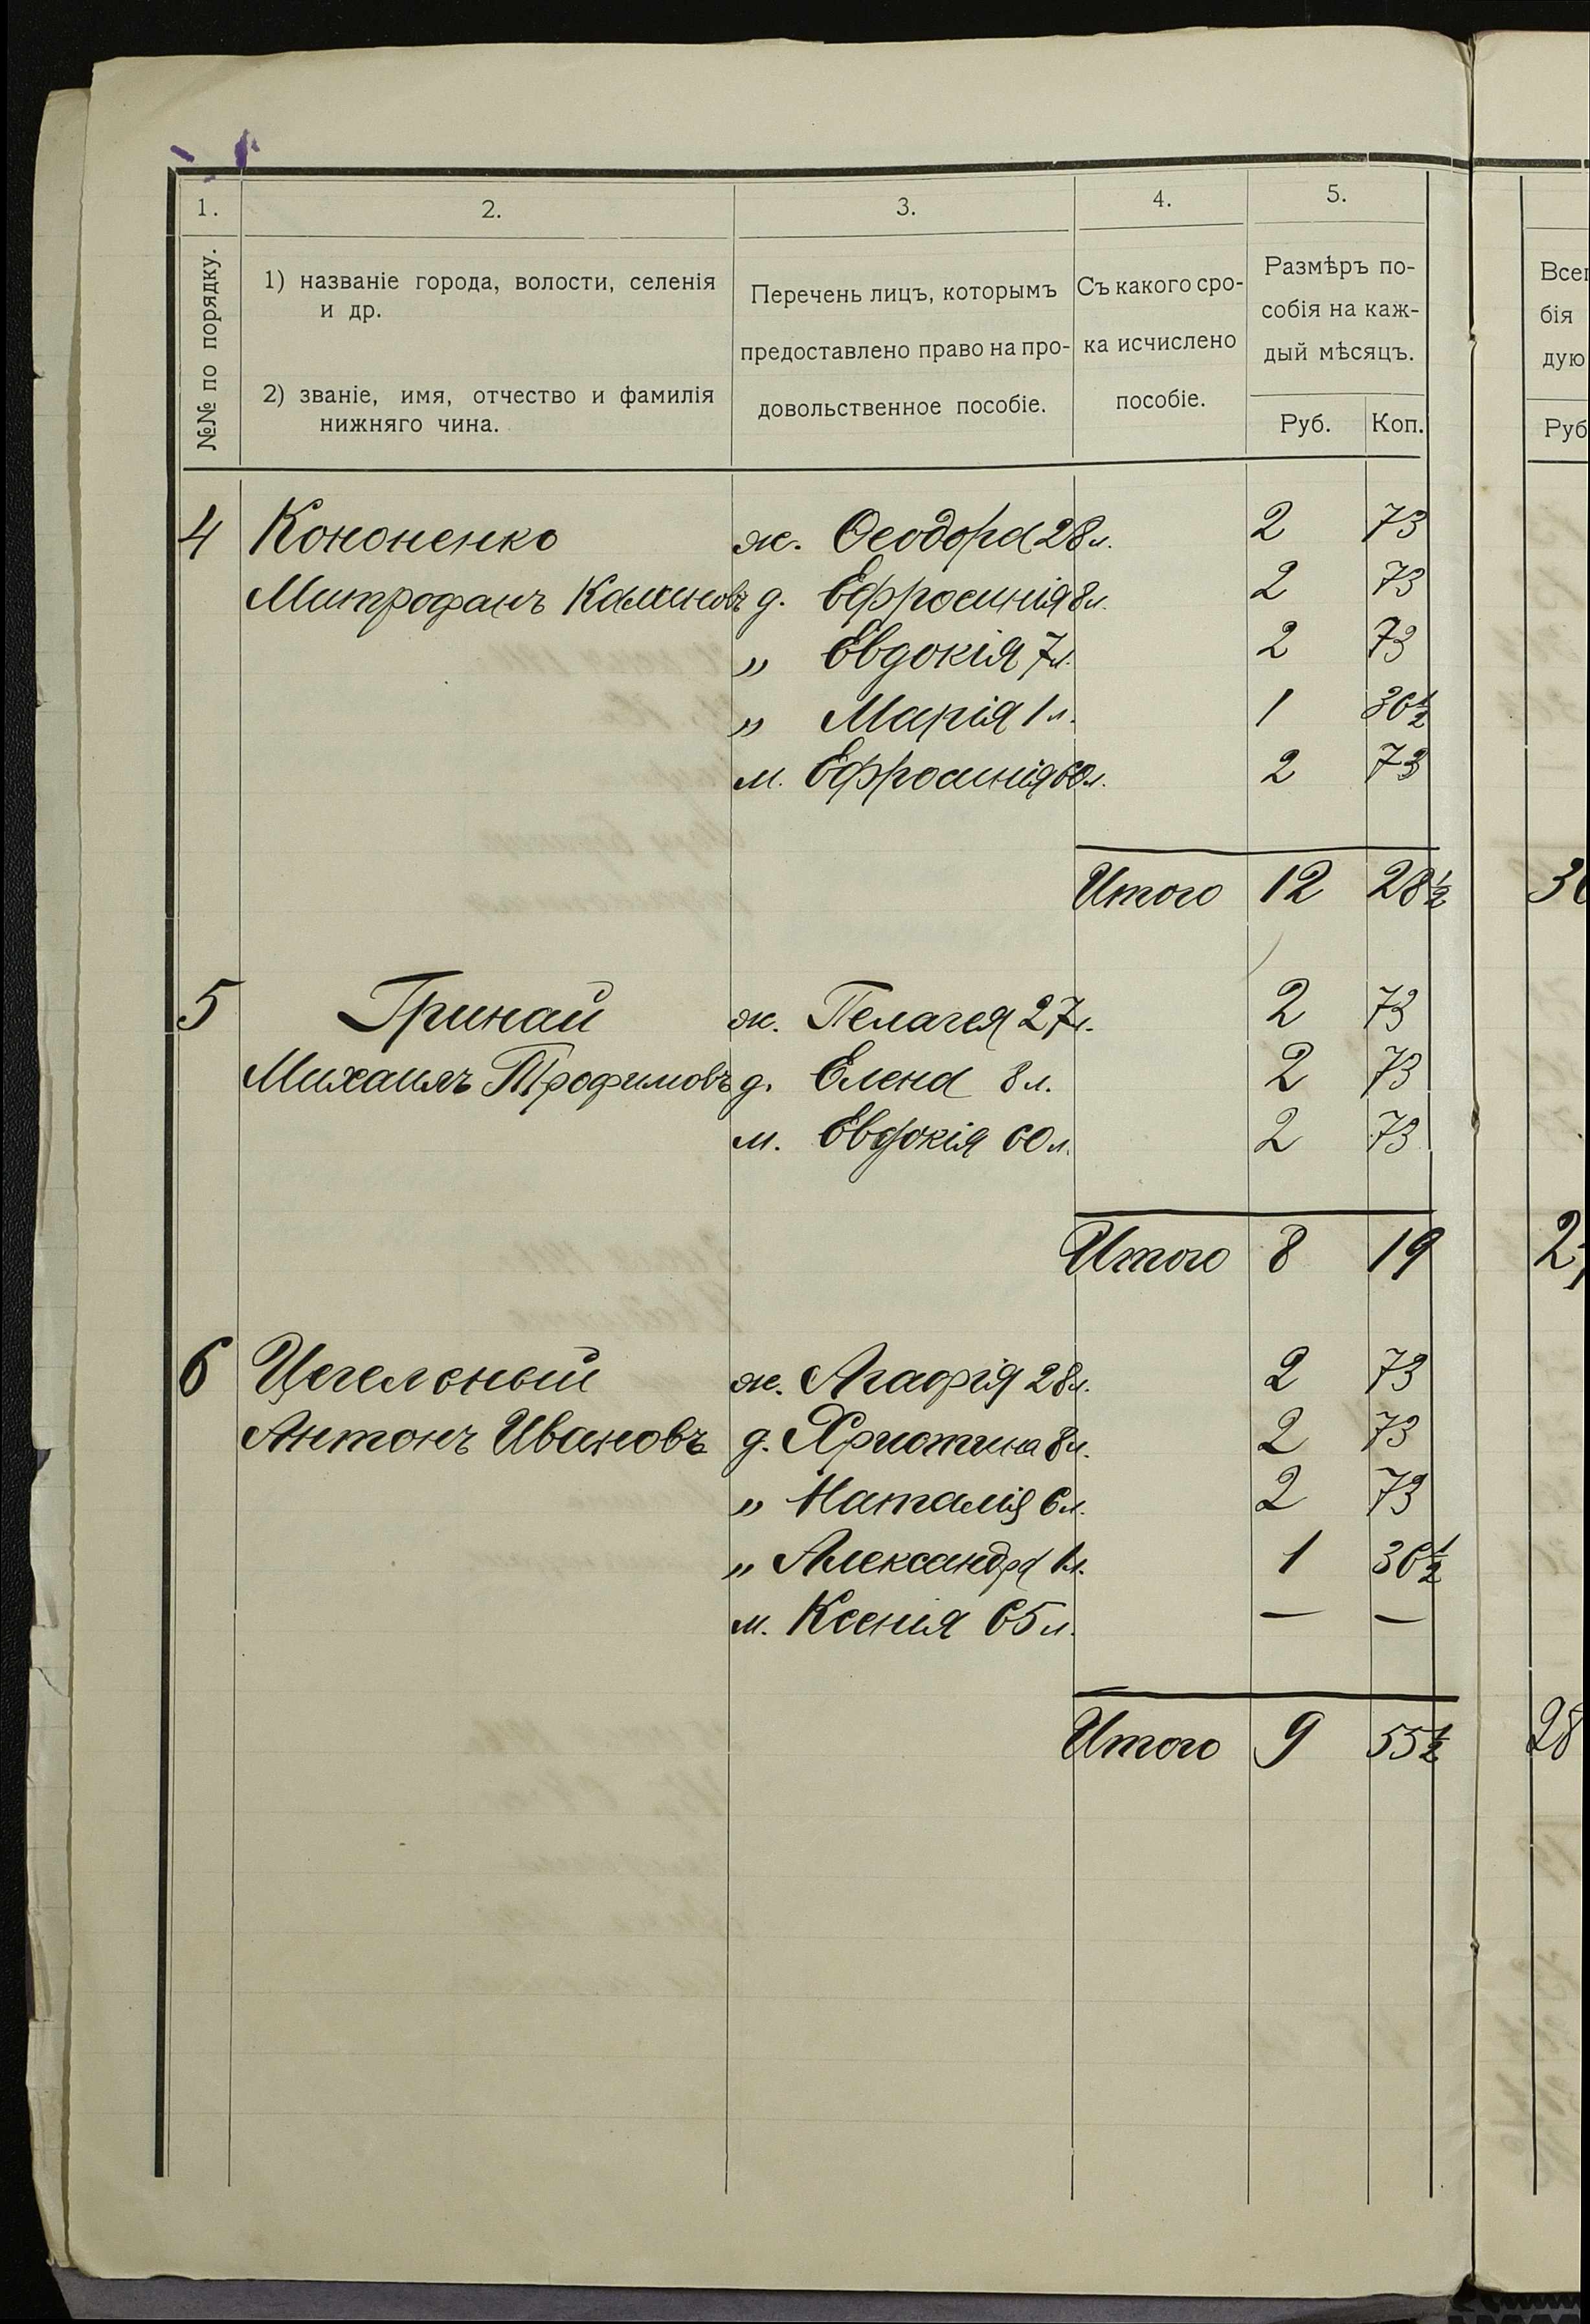 1. 2. 3. 4. 5.
№№ по порядку.
1) названіе города, волости, селенія
и др.
2) званіе, имя, отчество и фамилія
нижняго чина.
Перечень лицъ, которымъ
предоставлено право на про-
довольственное пособіе.
Съ какого сро-
ка исчислено
пособіе.
Размѣръ по-
собія на каж-
дый мѣсяцъ.
Руб. Коп.
Всег
бія
дую
Руб
4 Кононенко ж. Ѳеодора 28 л. 2 73
Митрофанъ Калиновъ д. Ефросинія 8 л. 2 73
„ Евдокія 7 л. 2 73
„ Марія 1 л. 1 36½
м. Ефросинія 60 л. 2 73
Итого 12 28½
5 Гринай ж. Пелагея 27 л. 2 73
Михаилъ Трофимовъ д. Елена 8 л. 2 73
м. Евдокія 60 л. 2 73
Итого 8 19
6 Цегельный ж. Агафія 28 л. 2 73
Антонъ Ивановъ д. Христина 8 л. 2 73
„ Наталія 6 л. 2 73
„ Александра 1 л. 1 36½
м. Ксенія 65 л. — —
Итого 9 55½ 28